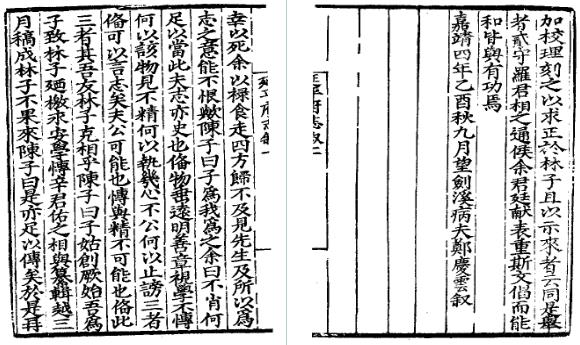 幸以死余以祿食走四方歸不及見先生及所以為
志之意能不恨歟陳子曰子為我為之余曰不肖何
足以當此夫志亦史也俻物垂遠明善章視學不博
何以該物見不精何以執幾心不公何以止謗二者
俻可以言志矣夫公可能也博與精不可能也俻此
三者其吾友林子克相乎陳子曰子始創厥始吾為
子致林子廼檄求安學博辛君佑之相與纂輯越三
月稿成林子不果來陳子曰是亦足以傳矣於是再
加校理刻之以求正於林子且以示來者云同是舉
者貳守羅君相之通候余君廷献表重斯文倡而能
和皆與有功焉
嘉靖四年乙酉秋九月望劍溪病夫鄭慶雲叙